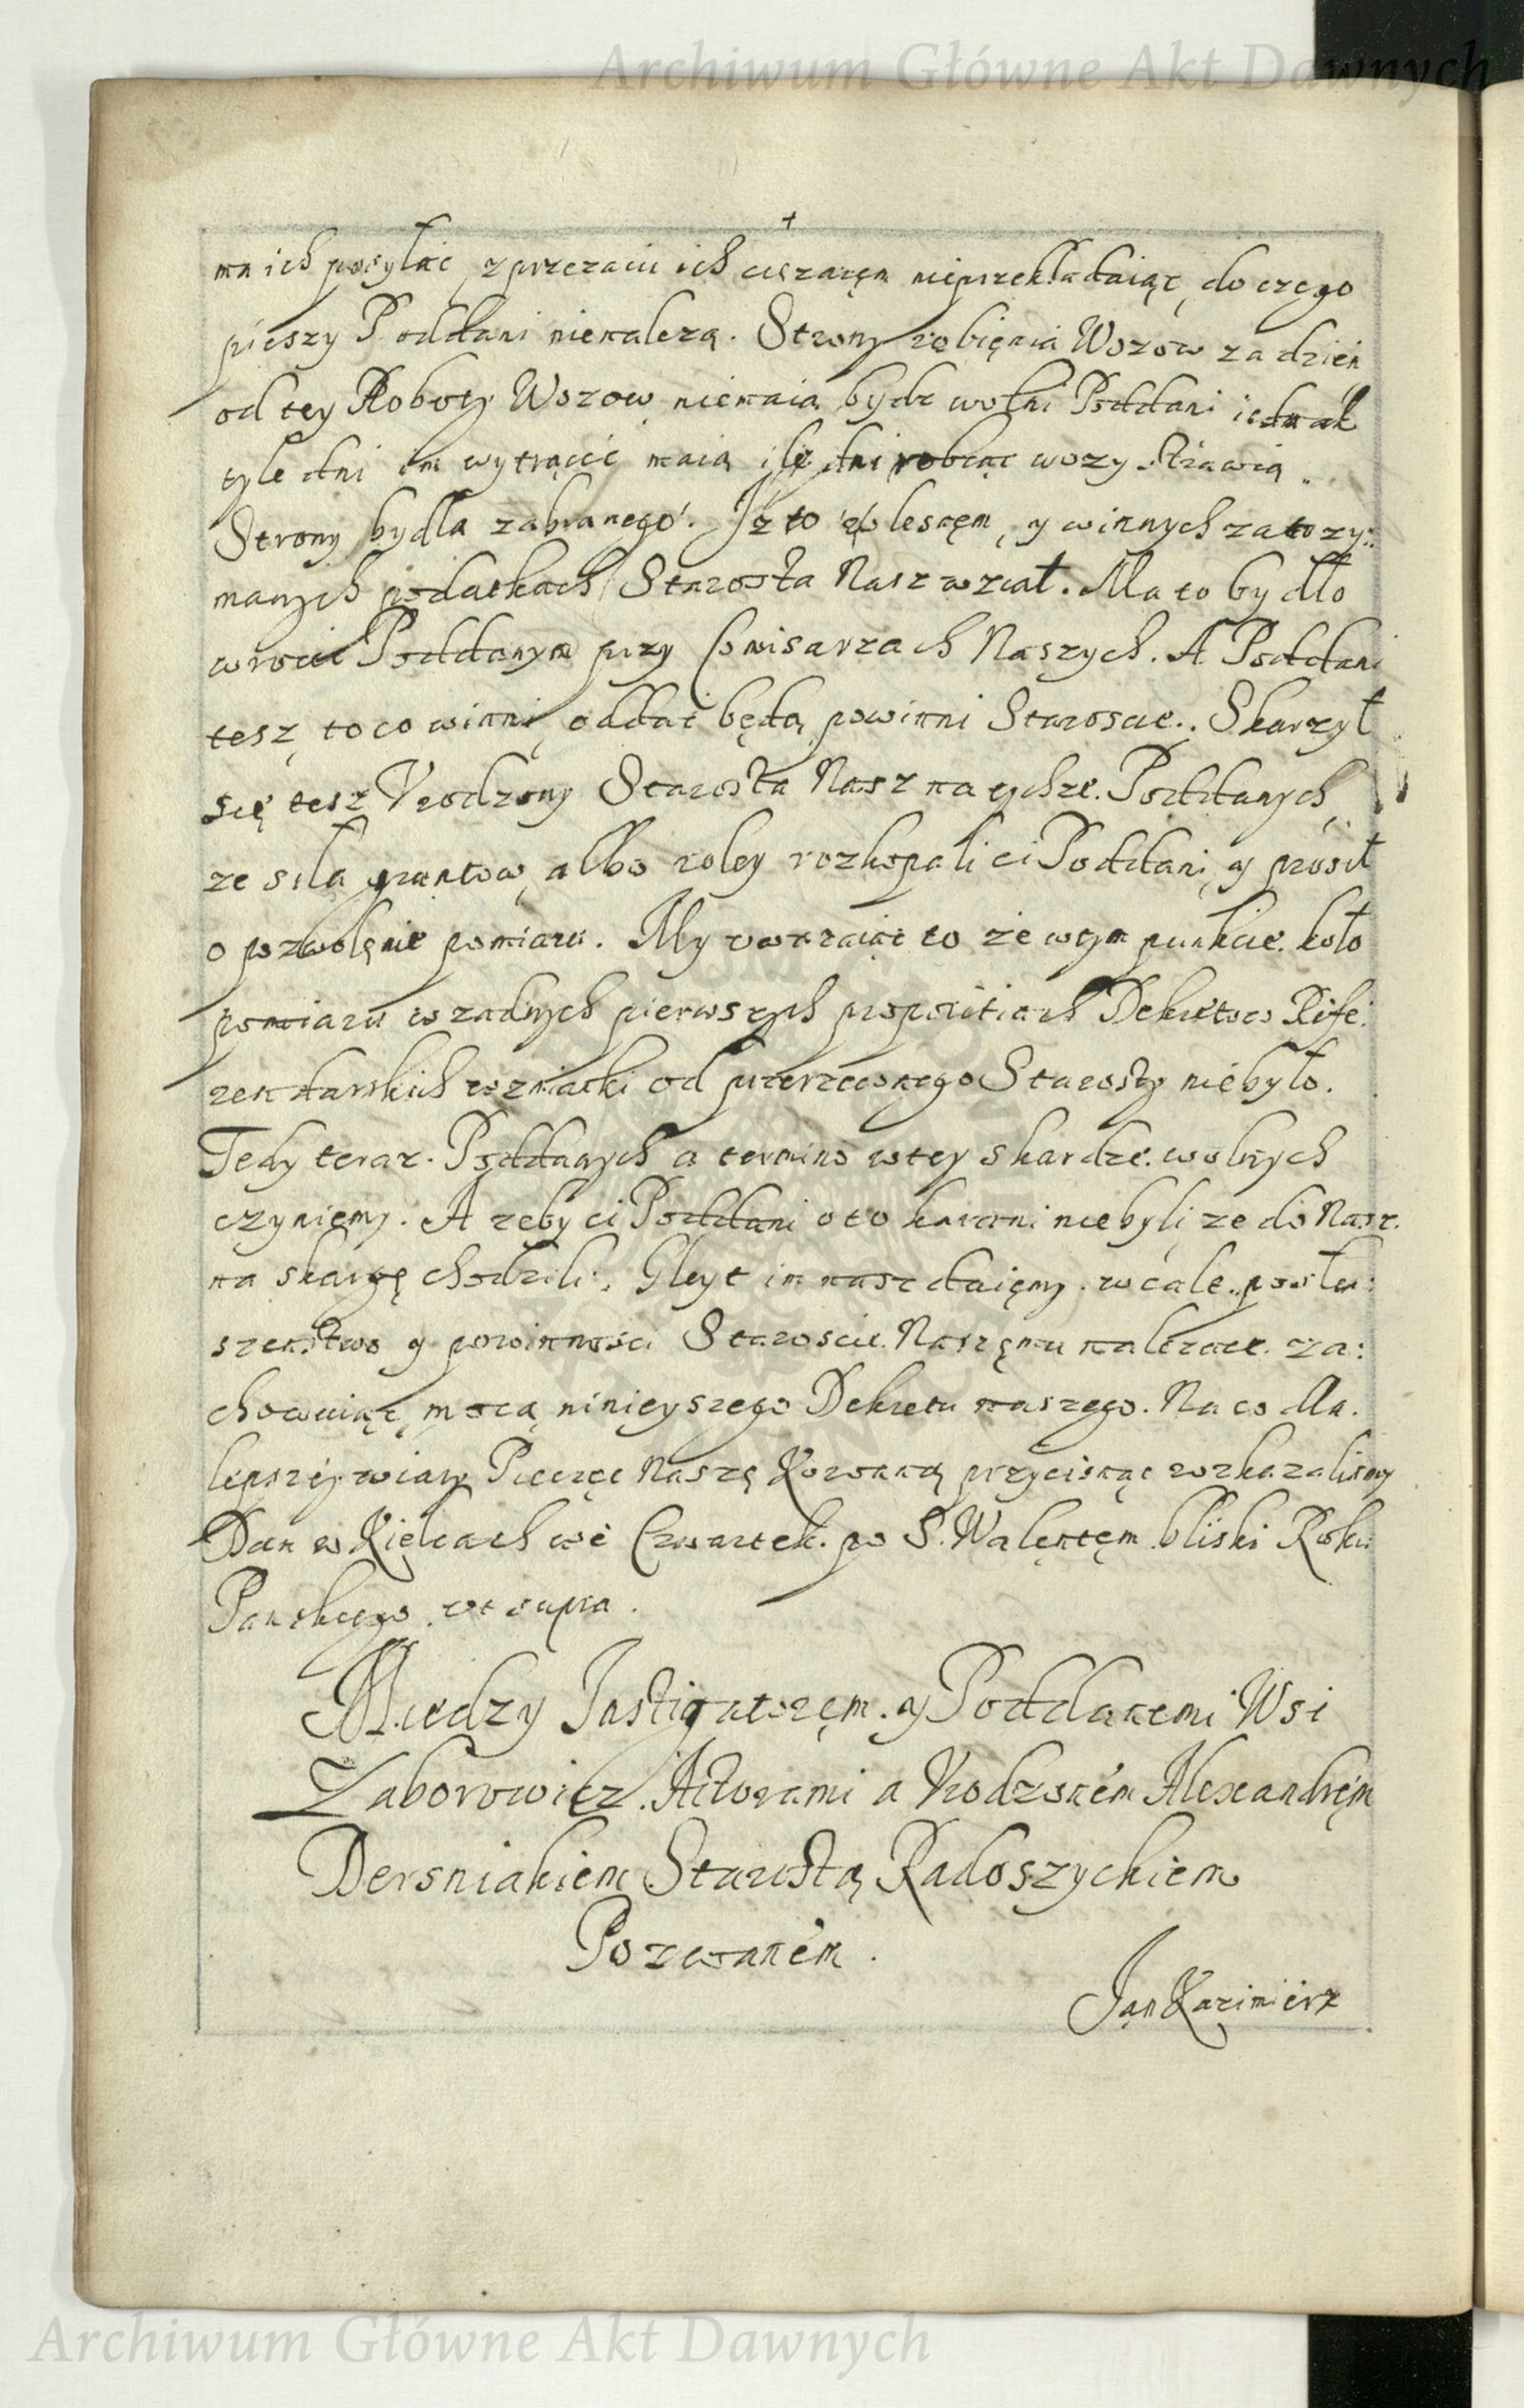 Archiwum Główne Akt Dawnych
ma ich posyłac, z przezaiu ich czazęm nieprzekładaiąc, do czego
pieszy Poddani nienalezą. Strony robięnia Wozow za dzień
od tey Roboty Wozow niemaią bydz wolni Poddani iednak
tyle dni im wytrącić maią ile dni robiąc wozy strawią.
Strony bydła zabranego. Iz to w lesnęm, y w innych zatrzy:
manych podatkach Starosta Nasz wział. Ma to bydło
wrocic Poddanym przy Comisarzach Naszych. A Poddani
tesz to co winni, oddać będą powinni Staroscie. Skarzył
się tesz Vrodzony Starosta Nasz na tychze Poddanych,
ze siła gruntow, albo roley rozkopali ci Poddani, y prosił
o pozwolęnie pomiaru. My vwazaiąc to że w tym punkcie koło
pomiaru w zadnych pierwszych propositiach Dekretow Refe:
rendarskich wzmianki od pierzeczonego Starosty niebyło.
Tedy teraz Poddanych a termino w tey skardze wolnych
czyniemy. A zeby ci Poddani o to karani niebyli, ze do Nasz
na skargę chodzili, Gleyt im nasz daięmy. w cale posłu:
szenstwo y powinnosci Staroscie Naszęmu nalezące za:
chowuiąc, mocą ninieyszego Dekretu naszego. Na co dla
lepszey wiary Pieczęć Naszą Koronną przycisnąc rozkazalismy
Dan w Kielcach we Czwartek po S. Walentęm bliski Roku
Panskiego vt supra.
Między Instigatoręm y Poddanemi Wsi
Zaborowicz Actorami a Vrodzoném Alexandręm
Dersniakiem Starostą Radoszyckiem
Pozwaném.
Jan Kazimierz
Archiwum Główne Akt Dawnych